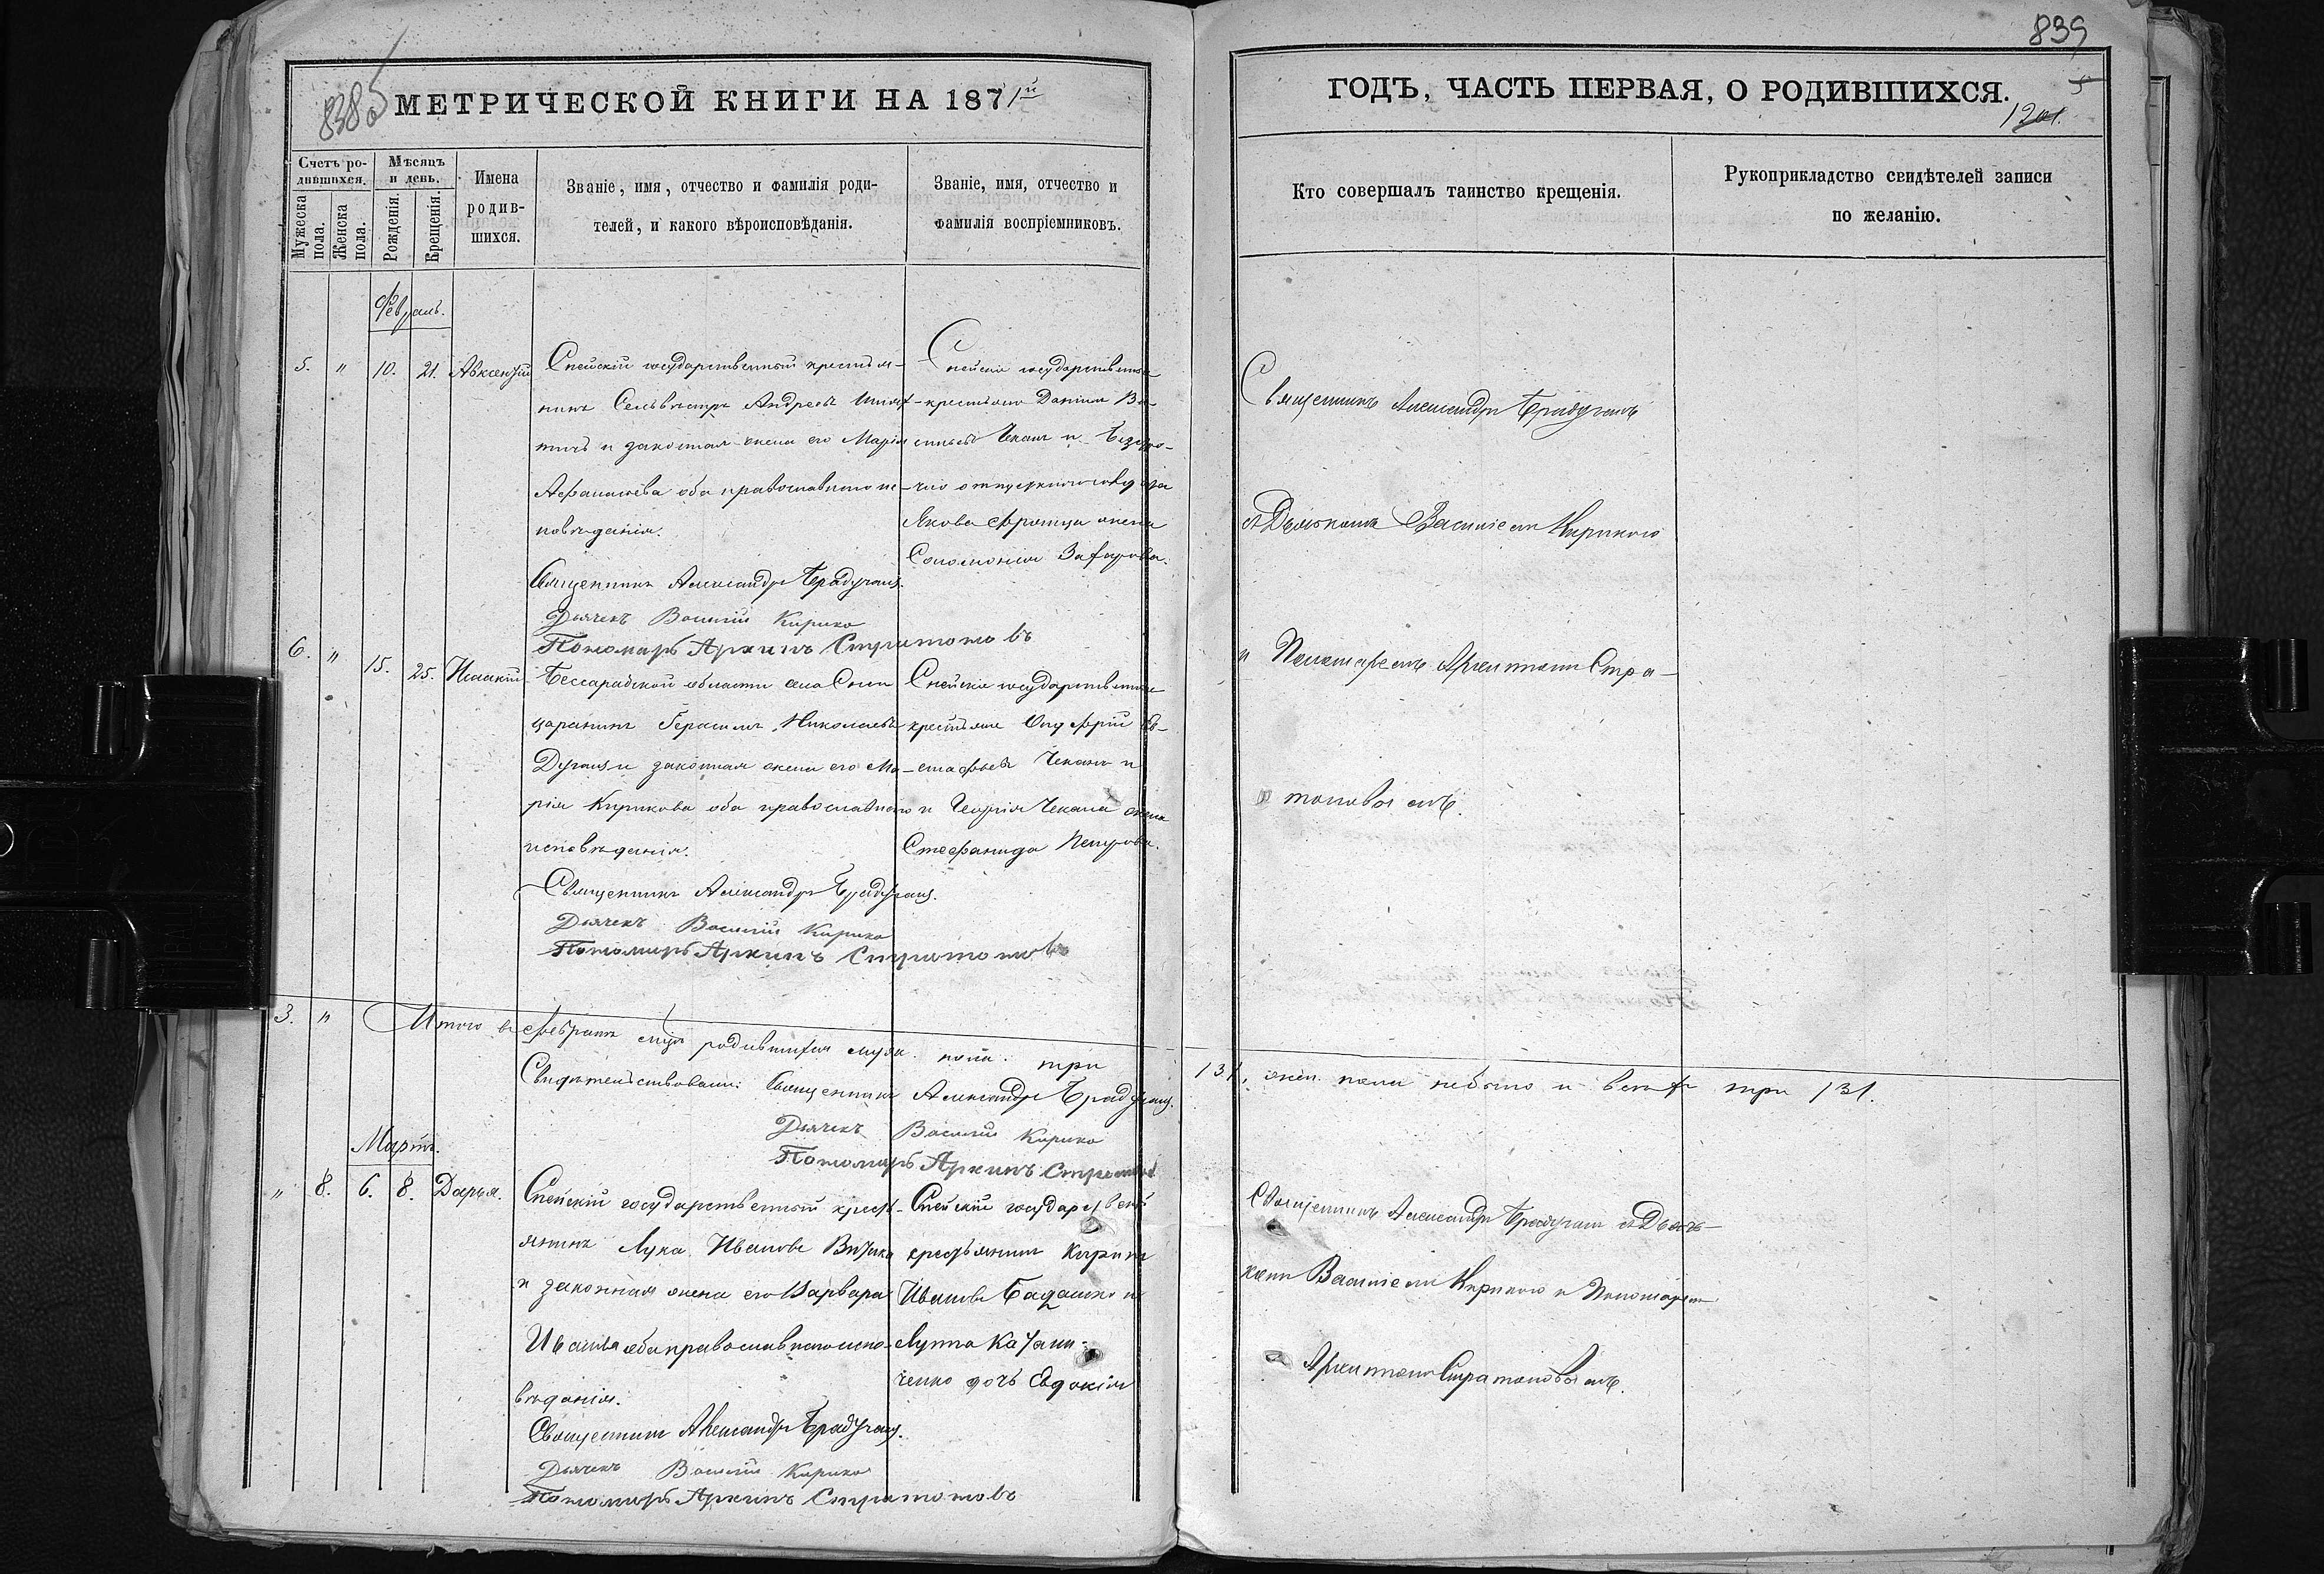 838 об
МЕТРИЧЕСКОЙ КНИГИ НА 1871й
Счетъ родившихся.
Мужеска пола.
Женска пола.
Мѣсяцъ и день.
Рожденія.
Крещенія.
Имена родившихся.
Званіе, имя, отчество и фамилія родителей, и какого вѣроисповѣданія.
Званіе, имя, отчество и фамилія воспріемниковъ.
Февраль.
5. " 10. 21. Авксентій
Спейскій государственный крестья-
нинъ Сельвестръ Андреевъ
и законная жена его Марія
Афанасьева оба православнаго ис-
повѣданія.
Священникъ Александръ Брадучанъ.
Дьячекъ Василій Кирика
Пономарь Архипъ Стратоновъ
Спейскіе государственные
крестьяне Даніилъ Ва-
сильевъ Чеканъ и безсро-
чно отпускного
Якова жена
Соломонія Захарова.
6. " 15. 25. Исаакій
Бессарабской области села Спеи
царанинъ Герасимъ Николаевъ
и законная жена его Ма-
рія Кирикова оба православнаго
исповѣданія.
Священникъ Александръ Брадучанъ.
Дьячекъ Василій Кирика
Пономарь Архипъ Стратоновъ
Спейскіе государственные
крестьяне Онуфрій Ев-
стафьевъ Чеканъ и
и Георгія Чекана жена
Стефанида Петрова.
3. " Итого въ февралѣ мцѣ родившихся муж. пола. три
Свидѣтельствовали: Священникъ Александръ Брадучанъ.
Дьячекъ Василій Кирика
Пономарь Архипъ Стратоновъ
Мартъ.
" 8. 6. 8. Дарья.
Спейскій государственный крест-
янинъ Лука Ивановъ
и законная жена его Варвара
Иванова оба православнаго испо-
вѣданія.
Священникъ Александръ Брадучанъ.
Дьячекъ Василій Кирика
Пономарь Архипъ Стратоновъ
Спейскій государствен
крестьянинъ Кирилъ
Ивановъ и
Луппа
ченко дочь Евдокія
839
ГОДЪ, ЧАСТЬ ПЕРВАЯ, О РОДИВШИХСЯ.
Кто совершалъ таинство крещенія.
Рукоприкладство свидѣтелей записи по желанію.
Священникъ Александръ Брадучанъ
съ Дьячкомъ Василіемъ Кирикою
и Пономаремъ Архипомъ Стра-
тоновымъ.
/3/, жен. пола небыло и всѣхъ три /3/.
Священникъ Александръ Брадучанъ съ Дьяч-
комъ Василіемъ Кирикою и Пономаремъ
Архипомъ Стратоновымъ.